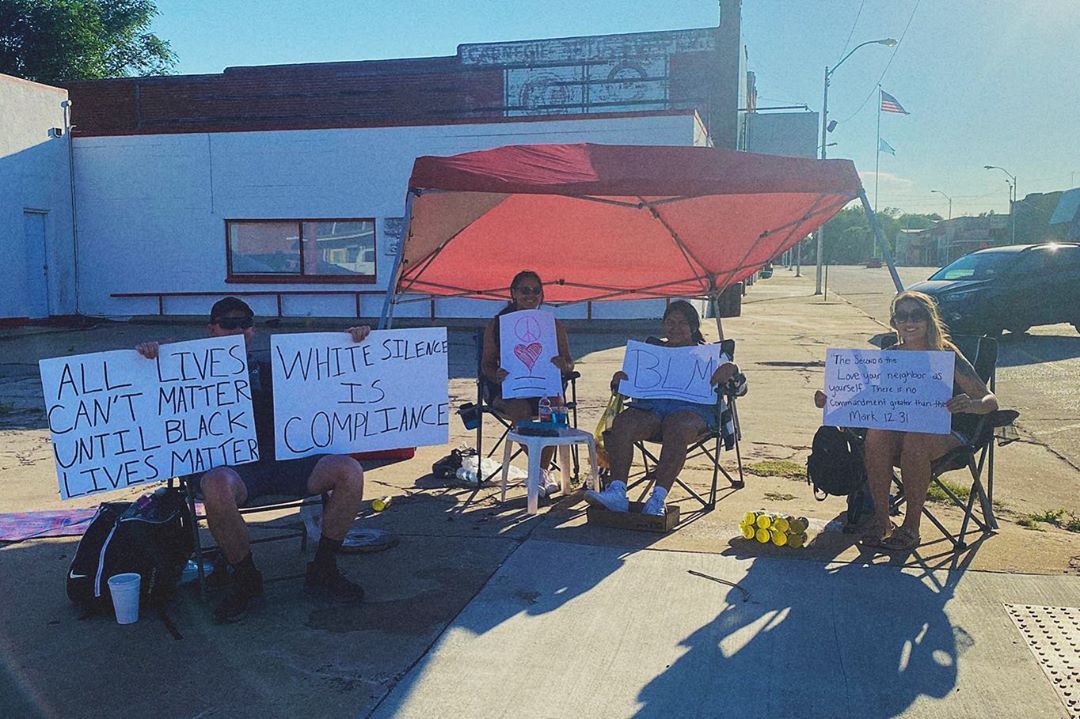 CARNEGIE
ALL LIVES
CAN'T MATTER
UNTIL BLACK
LIVES MATTER
WHITE SILENCE
IS
COMPLIANCE
BLM
The Second is
Love your neighbor as
yourself. There is no
Commandment greater than these
Mark 12:31